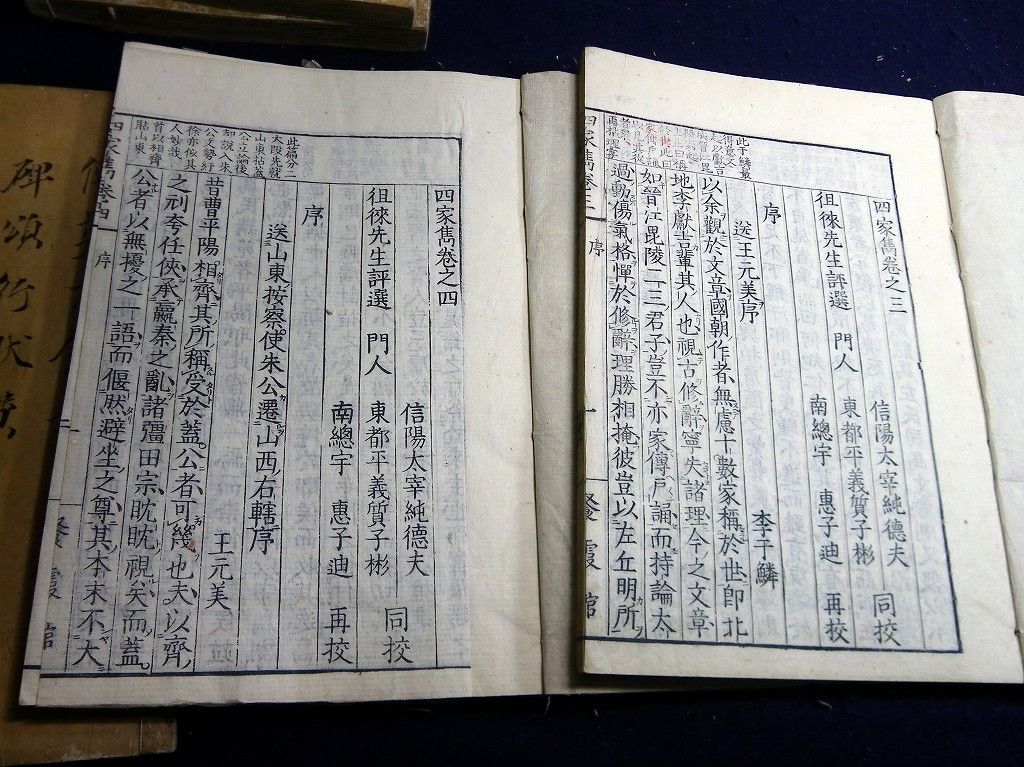 四家雋卷之三
徂徠先生評選　門人
信陽太宰純德夫
東都平義質子彬　同挍
南總宇　惠子迪　再挍
序
送王元美序
李于鱗
以余觀於文章國朝作者無慮十數家稱於世即北
地李獻吉輩其人也視古修辭寧失諸理今之文章
如晉江毘陵二三君子豈不亦家傳戶誦而持論太
過動傷氣格憚於修辭理勝相掩彼豈以左丘明所
四家雋卷三
序
一
館
四家雋卷之四
徂徠先生評選　門人
信陽太宰純德夫
東都平義質子彬　同挍
南總宇　惠子迪　再挍
序
送山東按察使朱公遷山西右轄序
王元美
昔曹平陽相齊其所稱受於蓋公者可幾也夫以齊
之剽夸任俠承嬴秦之亂諸彊田宗眈眈視矣而蓋
公者以無擾之一語而偃然避坐之尊其本末不大
此篇分二
大段先就
山東拈蓋
公立論後
却說入朱
公文勢紆
徐亦似其
人妙哉
首以相齊
貼山東
四家雋卷四
序
一
霞
館
碑頌行狀